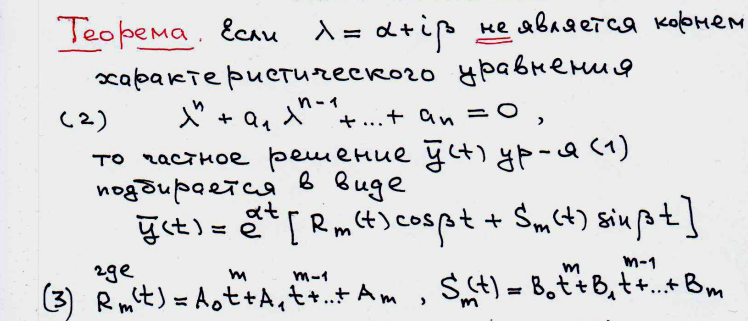 Теорема. Если λ = α + iβ не является корнем
характеристического уравнения
(2) λⁿ + a₁ λⁿ⁻¹ + ... + aₙ = 0 ,
то частное решение ȳ(t) ур-я (1)
подбирается в виде
ȳ(t) = e^{αt} [ Rₘ(t) cos βt + Sₘ(t) sin βt ]
где
(3) Rₘ(t) = A₀tᵐ + A₁tᵐ⁻¹ + ... + Aₘ , Sₘ(t) = B₀tᵐ + B₁tᵐ⁻¹ + ... + Bₘ